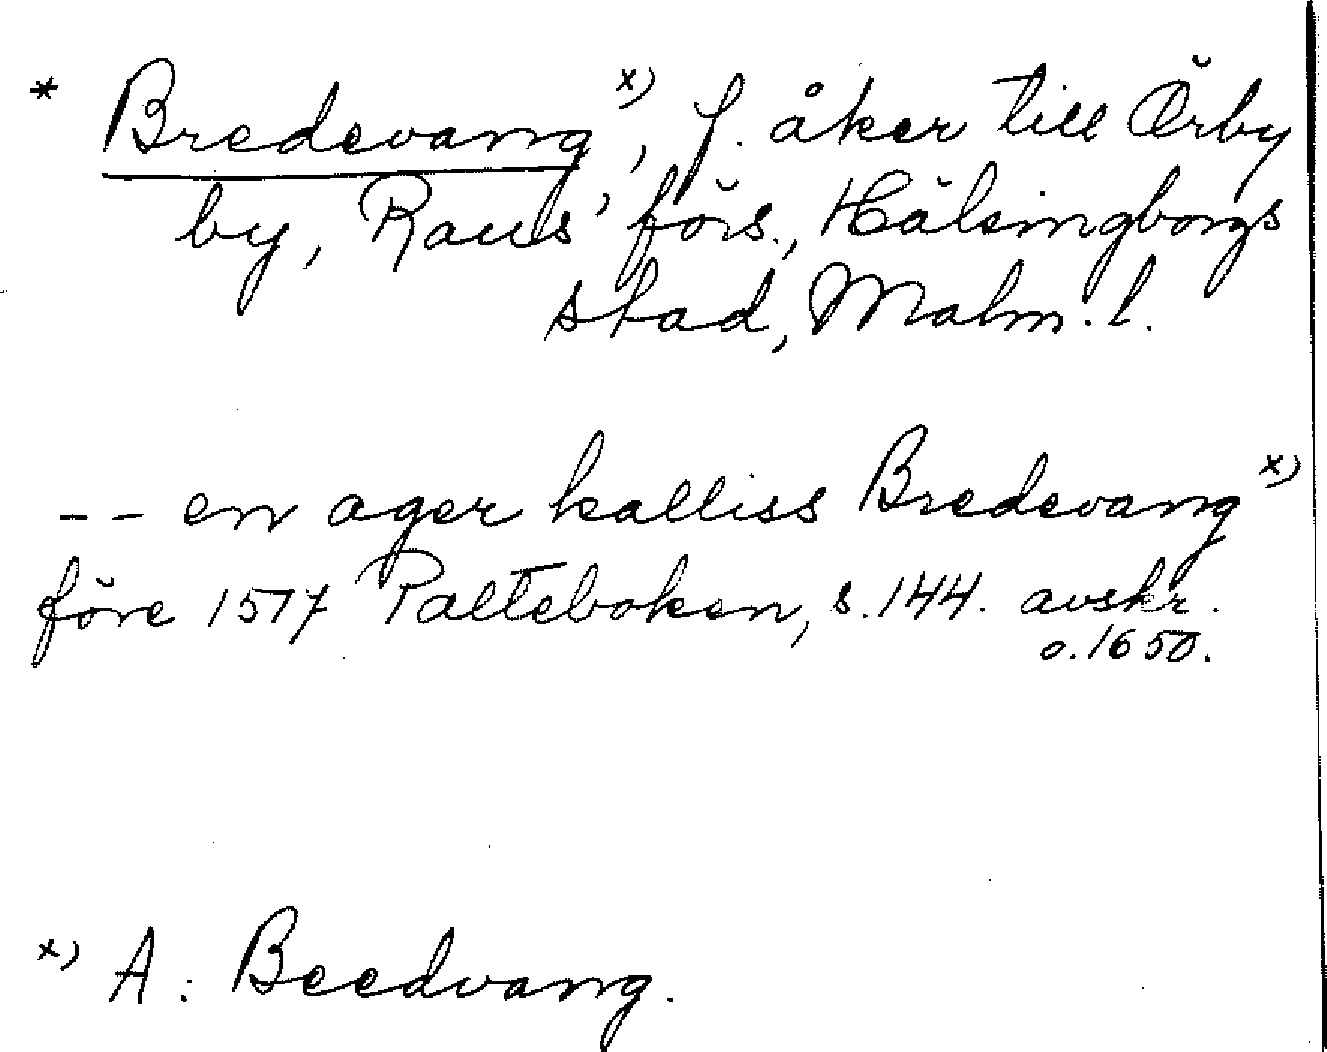 * Bredevang x), f. åker till Örby
by, Raus' förs., Hälsingborgs
stad, Malm. l.
-- en ager kalliss Bredevang x)
före 1517 Palteboken, s. 144. avskr.
o. 1650.
x) A: Beedvang.